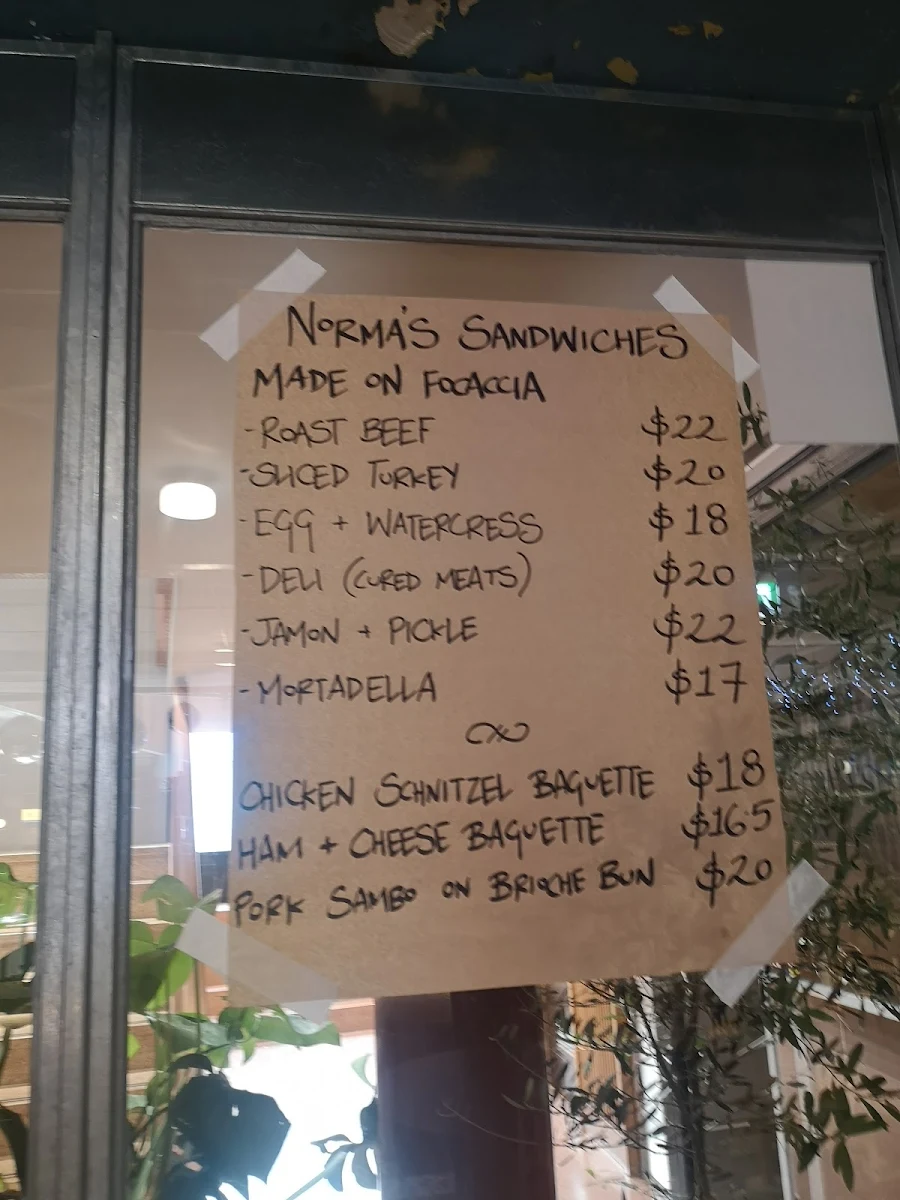 NORMA'S SANDWICHES
MADE ON FOCACCIA
-ROAST BEEF $22
-SLICED TURKEY $20
-EGG + WATERCRESS $18
-DELI (CURED MEATS) $20
-JAMON + PICKLE $22
-MORTADELLA $17
CHICKEN SCHNITZEL BAGUETTE $18
HAM + CHEESE BAGUETTE $16.5
PORK SAMBO ON BRIOCHE BUN $20